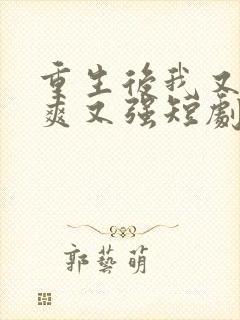 重生後我又
爽又强短劇
郭藝萌